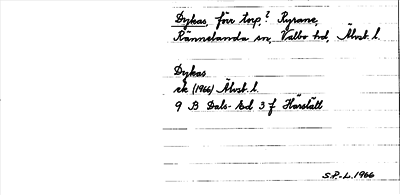 Dykas, förr torp,? Ryrane,
Rännelanda sn, Valbo hd, Älvsb. l.
Dykas
ek (1966) Älvsb. l.
9 B Dals-Ed 3 f Härslätt
S.P-L. 1966